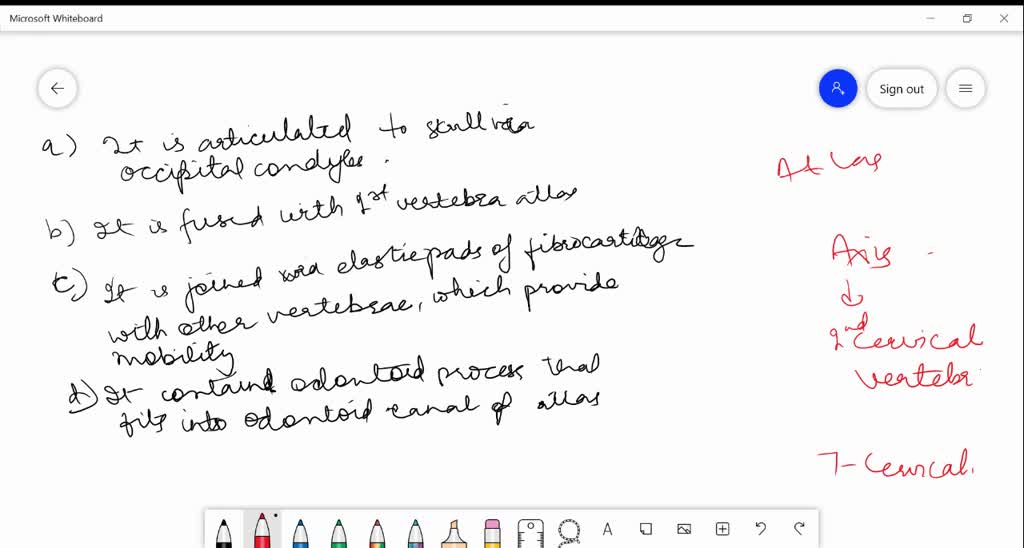 Microsoft Whiteboard
Sign out
a) It is articulated to skull via
occipital condyle.
b) It is fused with 1st vertebra atlas
c) It is joined via elastic pads of fibrocartilage
with other vertebrae, which provide
mobility
d) It contained odontoid process that
fits into odontoid canal of atlas
Atlas
Axis
2nd cervical
vertebr
7-Cervical.
A